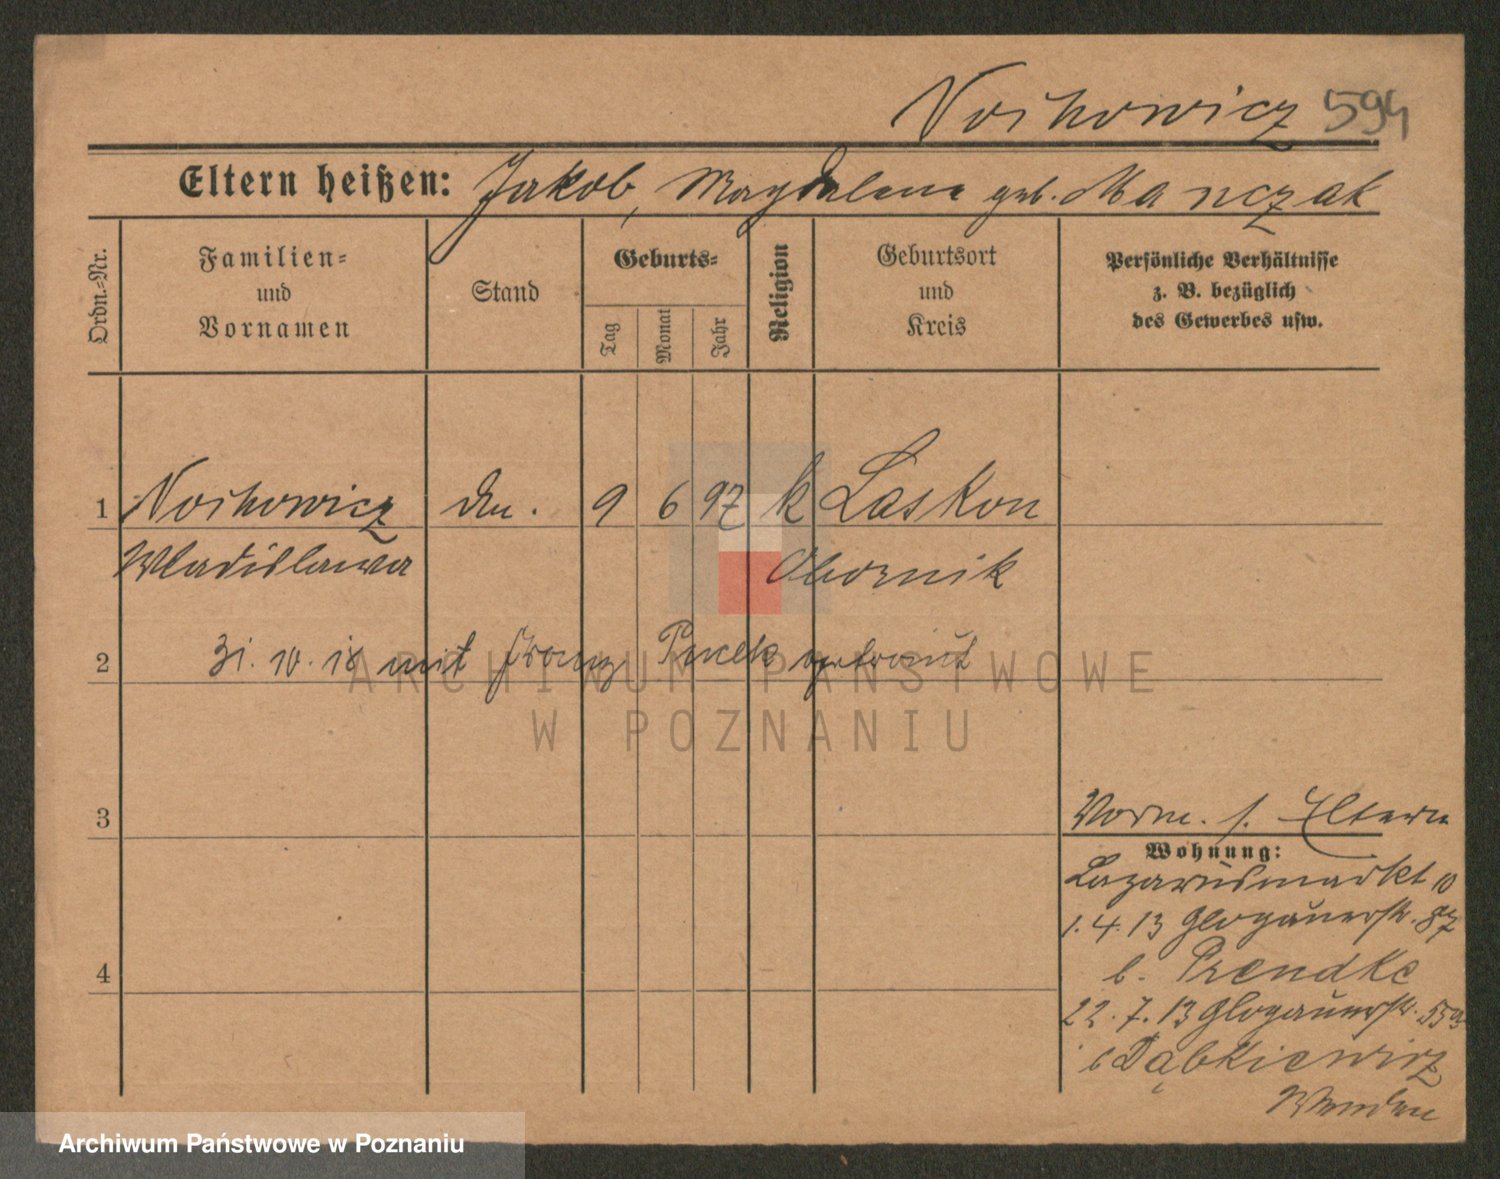 Noskowicz 594
Eltern heißen: Jakob, Magdalena geb. Manczak
Ordn.-Nr.
Familien-
und
Vornamen
Stand
Geburts-
Tag
Monat
Jahr
Religion
Geburtsort
und
Kreis
Persönliche Verhältnisse
z. B. bezüglich
des Gewerbes usw.
1 Noskowicz 9 6 97 k Laskon
Wladislawa Obornik
2 31. 10. 18 mit Franz getraut
3
Vorm. s. Eltern
Wohnung:
Lazarusmarkt 10
1. 4. 13 Glogauerstr. 87
b. Prendke
4
22. 7. 13 Glogauerstr.
b Dąbkiewicz
Archiwum Państwowe
w Poznaniu
Archiwum Państwowe w Poznaniu